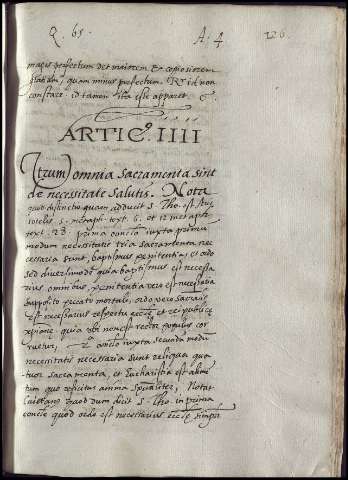 Q. 65. A. 4 126
magis perfectum det maiorem et copiosiorem
gratiam, quam minus perfectum. Rx id non
constare. id tamen ita esse apparet.
ARTIC.º IIII
Utrum omnia sacramenta sint
de necessitate salutis. Nota
quod distinctio quam adducit s. Tho. est
5. metaph. text. 6. et 12 metaph
text. 28. prima conclusio iuxta primum
modum necessitatis tria sacramenta ne
cessaria sunt, baptismus penitentia, et ordo
sed diversimode quia baptismus est necessa
rius omnibus, penitentia vero est necessaria
supposito peccato mortali, ordo vero
est necessarius respectu et rei publicę
quia ubi non est rector populus cor
ruetur, 2ª conclusio iuxta secundum modum
necessitatis necessaria sunt reliqua qua
tuor sacramenta, et Eucharistia est alimen
tum quo reficitur anima spualiter, Notat
Caietanus quod dum dicit s. Tho. in prima
concle quod ordo est necessarius